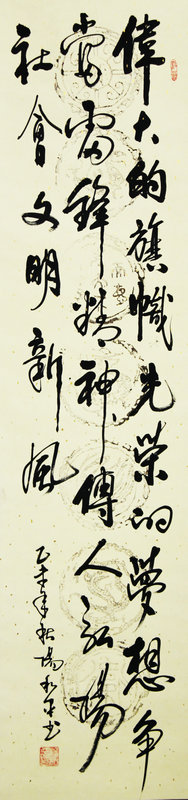 偉大的旗幟光榮的夢想争
當雷鋒精神傳人弘揚
社會文明新風
乙未年秋楊